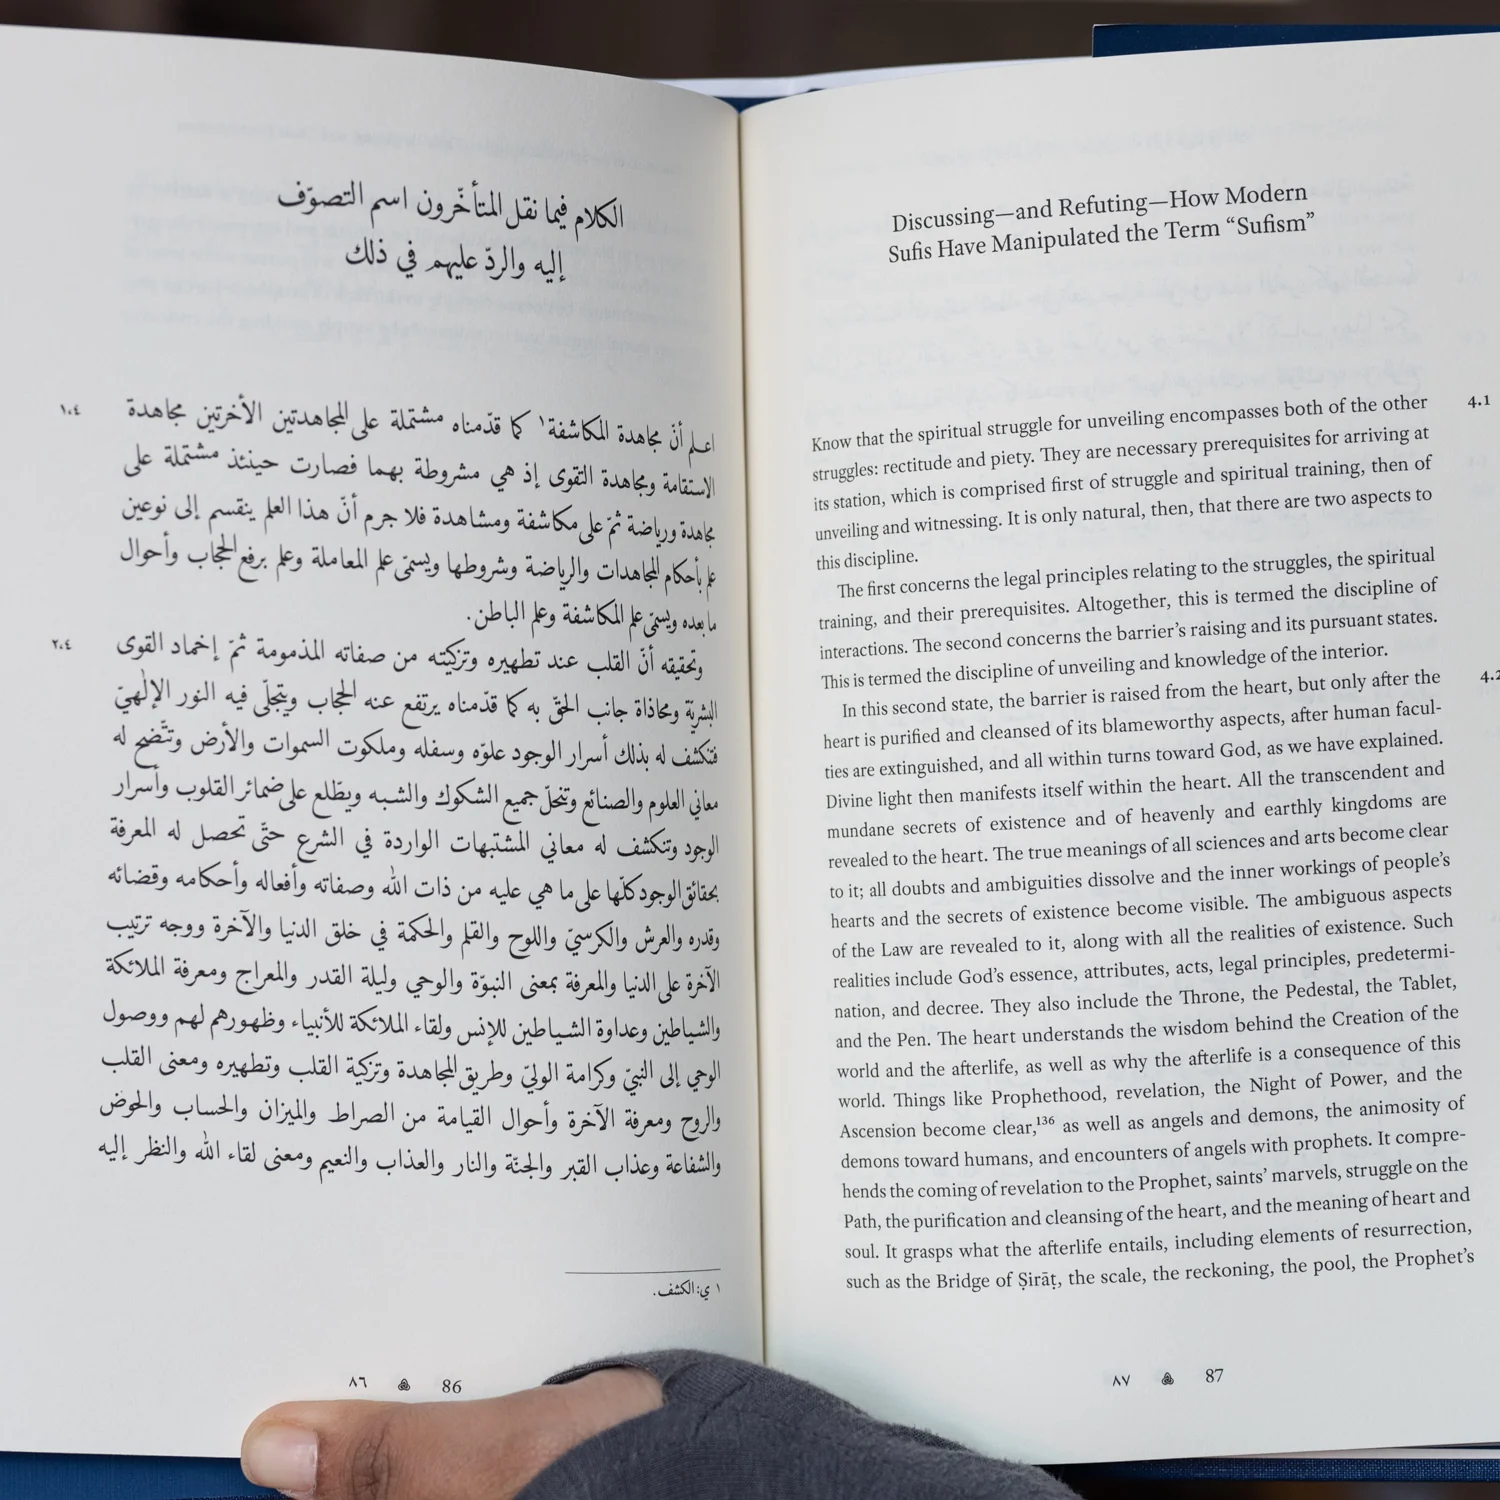 الكلام فيما نقل المتأخّرون اسم التصوّف
إليه والردّ عليهم في ذلك
١.٤
اعلم أنّ مجاهدة المكاشفة١ كما قدّمناه مشتملة على المجاهدتين الأخرتين مجاهدة
الاستقامة ومجاهدة التقوى إذ هي مشروطة بهما فصارت حينئذ مشتملة على
مجاهدة ورياضة ثمّ على مكاشفة ومشاهدة فلا جرم أنّ هذا العلم ينقسم إلى نوعين
علم بأحكام المجاهدات والرياضة وشروطها ويسمّى علم المعاملة وعلم برفع الحجاب وأحوال
ما بعده ويسمّى علم المكاشفة وعلم الباطن.
٢.٤
وتحقيقه أنّ القلب عند تطهيره وتزكيته من صفاته المذمومة ثمّ إخماد القوى
البشريّة ومحاذاة جانب الحقّ به كما قدّمناه يرتفع عنه الحجاب ويتجلّى فيه النور الإلٰهيّ
فتنكشف له بذلك أسرار الوجود علوّه وسفله وملكوت السموات والأرض وتتّضح له
معاني العلوم والصنائع وتنحلّ جميع الشكوك والشبه ويطّلع على ضمائر القلوب وأسرار
الوجود وتنكشف له معاني المشتبهات الواردة في الشرع حتّى تحصل له المعرفة
بحقائق الوجود كلّها على ما هي عليه من ذات الله وصفاته وأفعاله وأحكامه وقضائه
وقدره والعرش والكرسيّ واللوح والقلم والحكمة في خلق الدنيا والآخرة ووجه ترتيب
الآخرة على الدنيا والمعرفة بمعنى النبوّة والوحي وليلة القدر والمعراج ومعرفة الملائكة
والشياطين وعداوة الشياطين للإنس ولقاء الملائكة للأنبياء وظهورهم لهم ووصول
الوحي إلى النبيّ وكرامة الوليّ وطريق المجاهدة وتزكية القلب وتطهيره ومعنى القلب
والروح ومعرفة الآخرة وأحوال القيامة من الصراط والميزان والحساب والحوض
والشفاعة وعذاب القبر والجنّة والنار والعذاب والنعيم ومعنى لقاء الله والنظر إليه
١ ي: الكشف.
٨٦ 86
Discussing—and Refuting—How Modern
Sufis Have Manipulated the Term “Sufism”
Know that the spiritual struggle for unveiling encompasses both of the other
4.1
struggles: rectitude and piety. They are necessary prerequisites for arriving at
its station, which is comprised first of struggle and spiritual training, then of
unveiling and witnessing. It is only natural, then, that there are two aspects to
this discipline.
The first concerns the legal principles relating to the struggles, the spiritual
training, and their prerequisites. Altogether, this is termed the discipline of
interactions. The second concerns the barrier’s raising and its pursuant states.
This is termed the discipline of unveiling and knowledge of the interior.
In this second state, the barrier is raised from the heart, but only after the
4.2
heart is purified and cleansed of its blameworthy aspects, after human facul-
ties are extinguished, and all within turns toward God, as we have explained.
Divine light then manifests itself within the heart. All the transcendent and
mundane secrets of existence and of heavenly and earthly kingdoms are
revealed to the heart. The true meanings of all sciences and arts become clear
to it; all doubts and ambiguities dissolve and the inner workings of people’s
hearts and the secrets of existence become visible. The ambiguous aspects
of the Law are revealed to it, along with all the realities of existence. Such
realities include God’s essence, attributes, acts, legal principles, predetermi-
nation, and decree. They also include the Throne, the Pedestal, the Tablet,
and the Pen. The heart understands the wisdom behind the Creation of the
world and the afterlife, as well as why the afterlife is a consequence of this
world. Things like Prophethood, revelation, the Night of Power, and the
Ascension become clear,136 as well as angels and demons, the animosity of
demons toward humans, and encounters of angels with prophets. It compre-
hends the coming of revelation to the Prophet, saints’ marvels, struggle on the
Path, the purification and cleansing of the heart, and the meaning of heart and
soul. It grasps what the afterlife entails, including elements of resurrection,
such as the Bridge of Ṣirāṭ, the scale, the reckoning, the pool, the Prophet’s
٨٧ 87